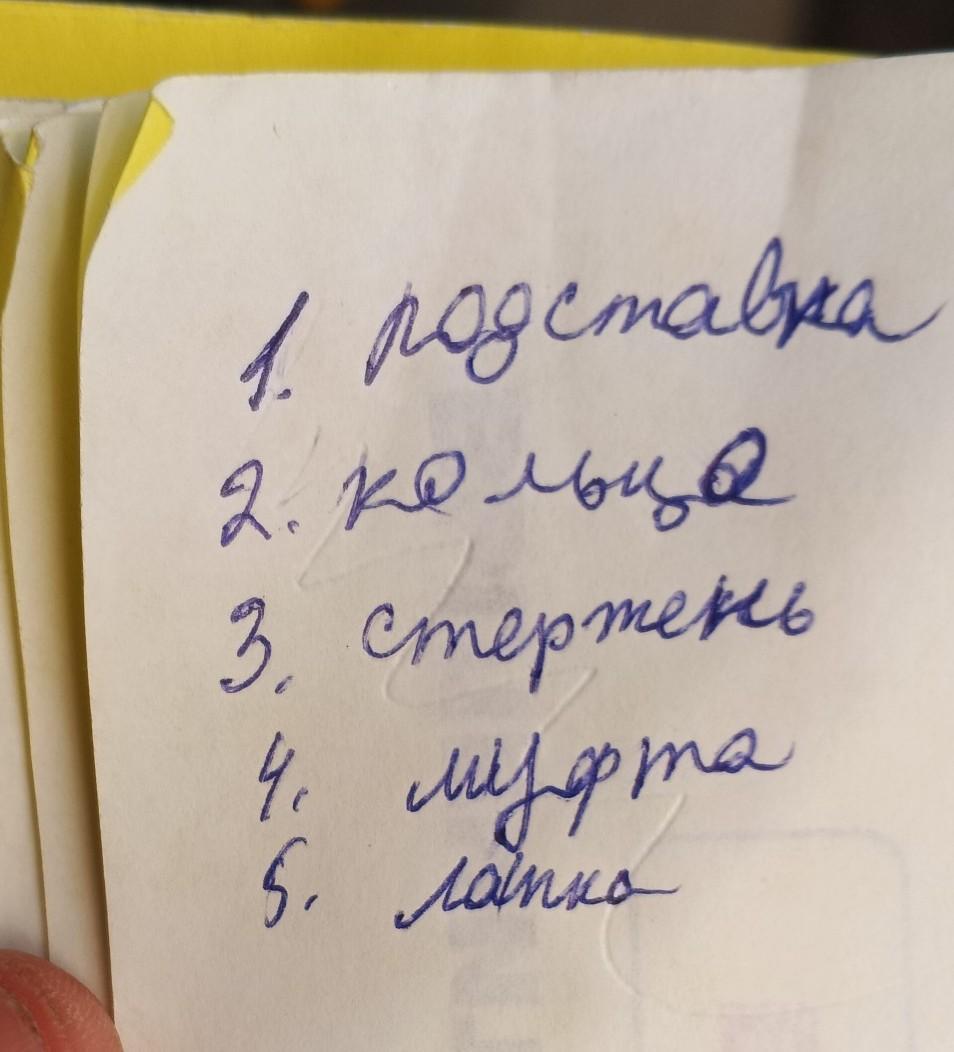 1. подставка
2. кольцо
3. стержень
4. муфта
5. лапка